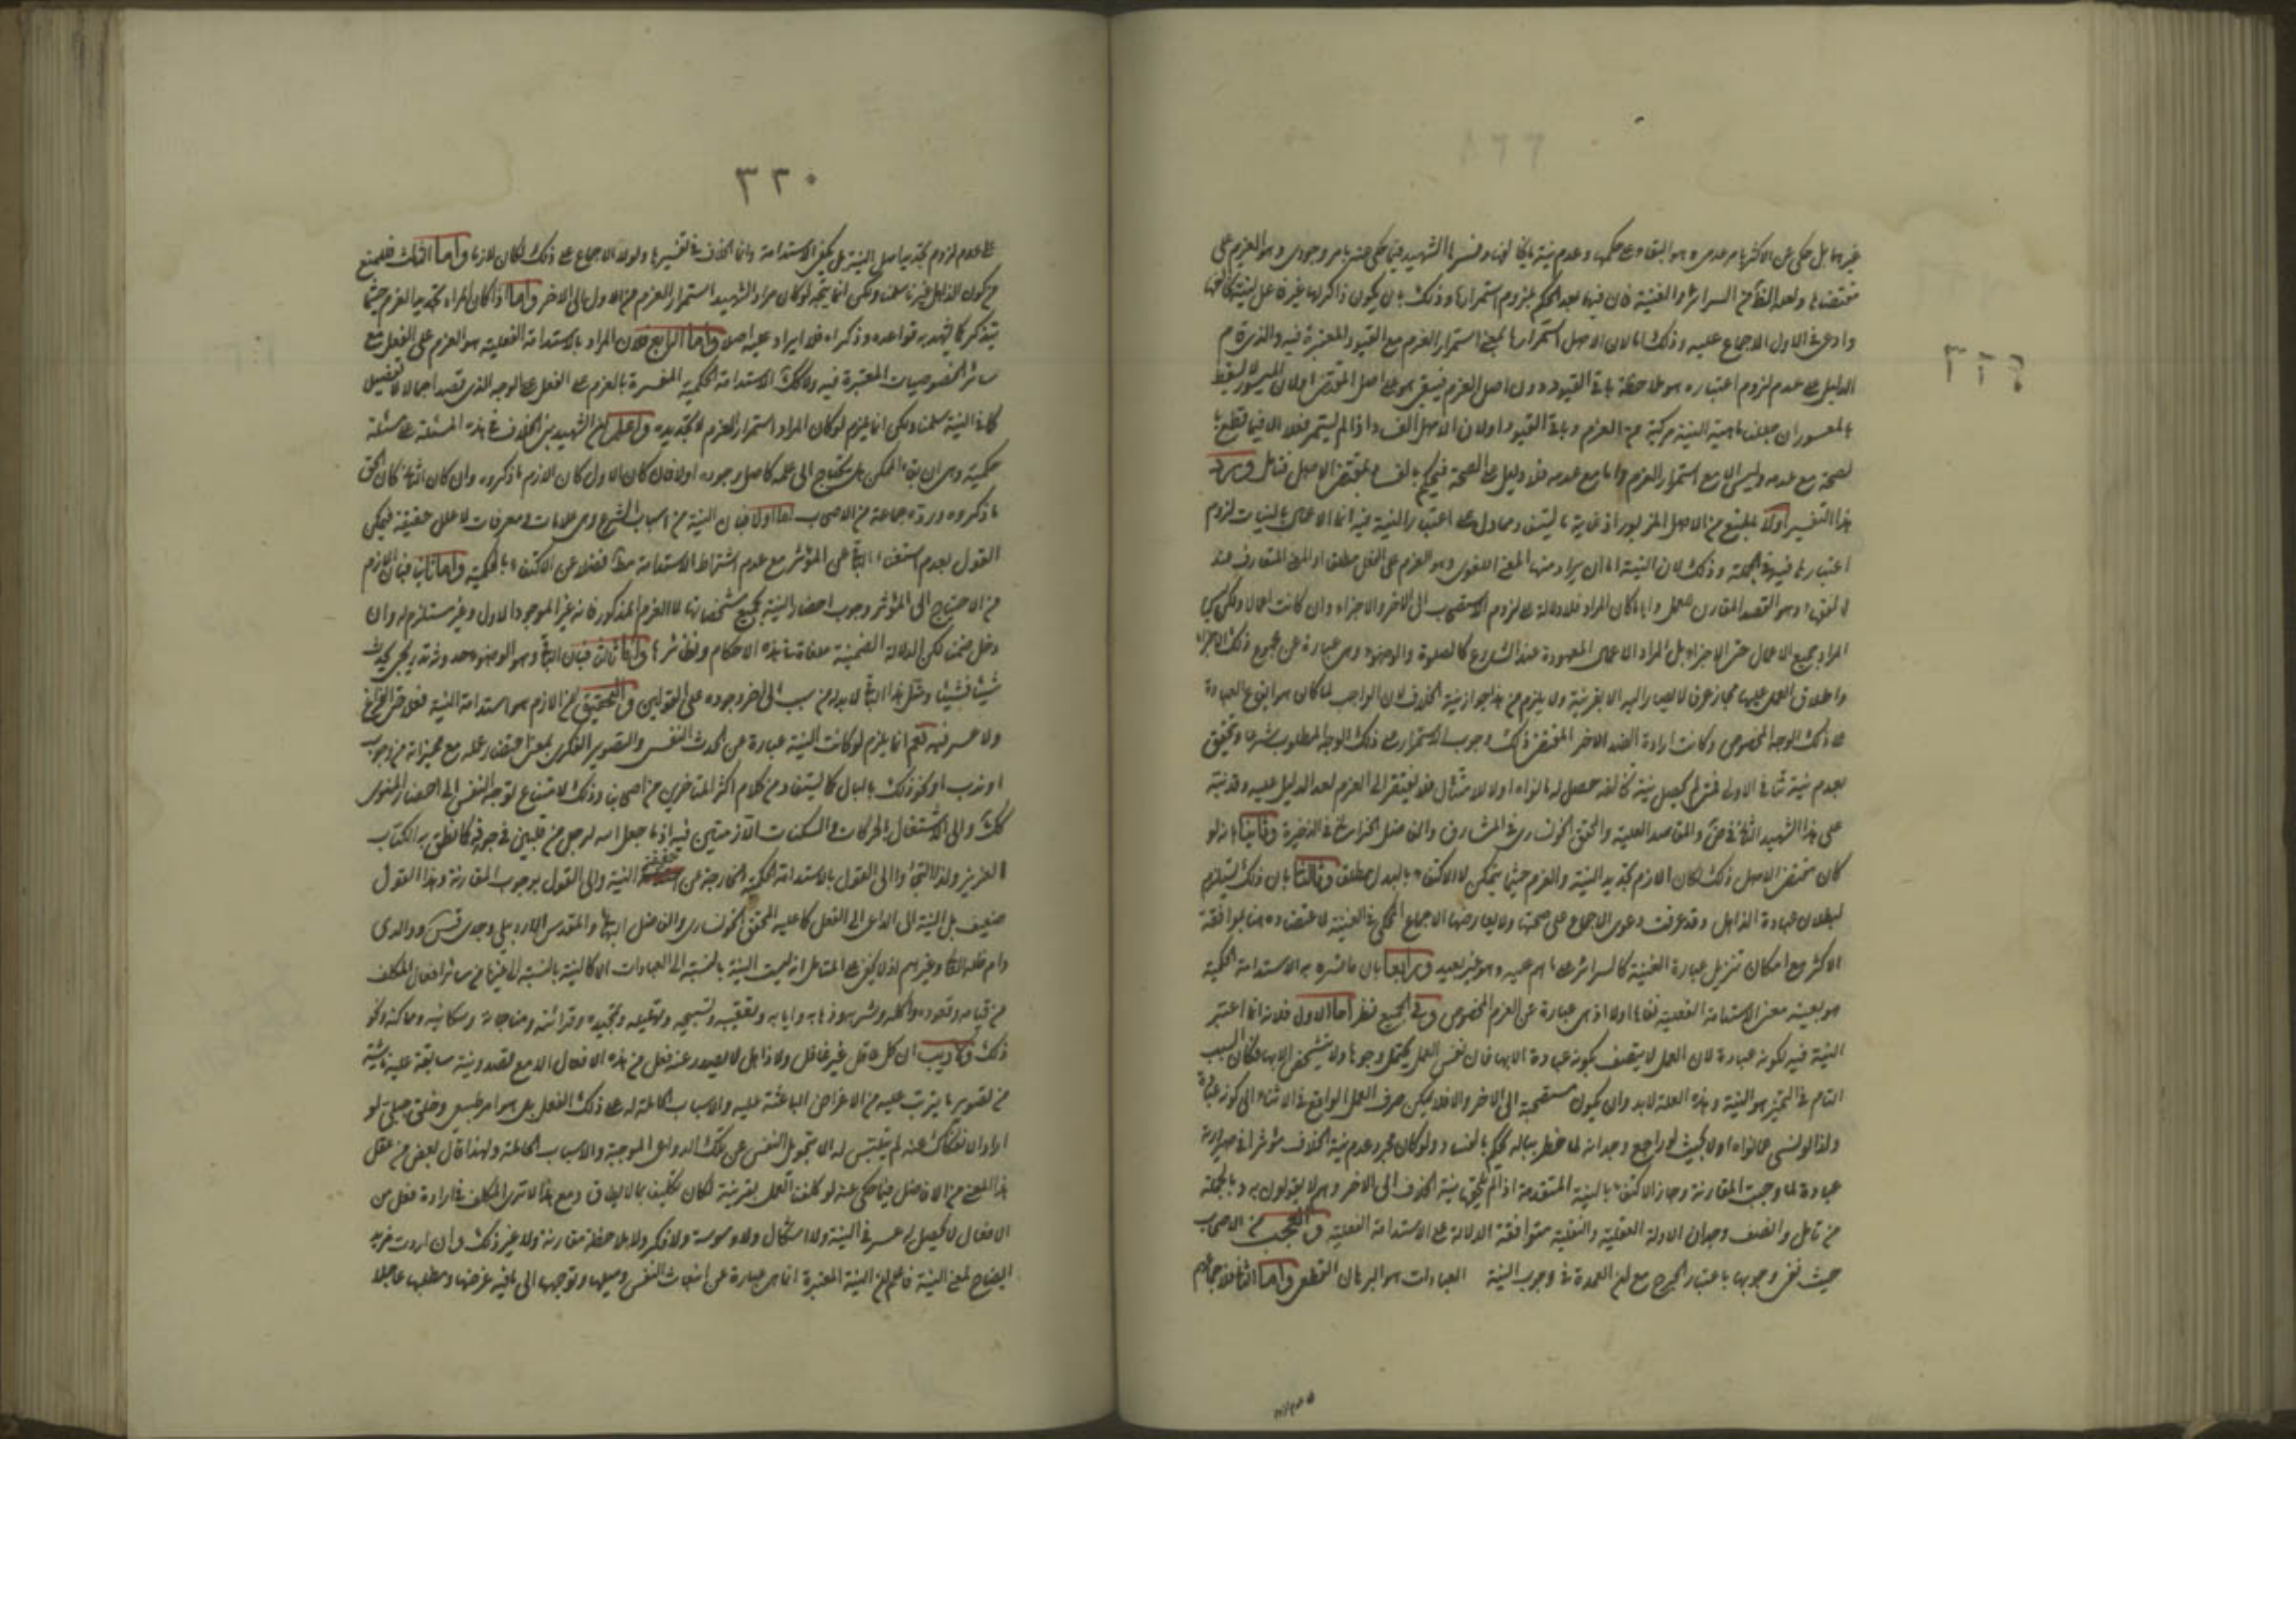 غيرهما بل حكى عن الاكثر بامر عدمى وهو البقاء على حكمها وعدم نية ما يخالفها وفسرها الشهيد فيما حكى عنه بامر وجودى وهو العزم على
مقتضاها ولعله الظاهر من السرائر والغنية فان فيهما بعد الحكم بلزوم استمرارها وذلك بان يكون ذاكرا لها غير فاعل لنية تخالفها
وادعى فى الاول الاجماع عليه وذلك اما لان الاصل استمرارها بمعنى استمرار العزم مع القيود المعتبرة فيه والذى قام
الدليل على عدم لزوم اعتباره هو ملاحظة باقى القيود دون اصل العزم فيبقى هو على اصل المقتضى او لان الميسور لا يسقط
بالمعسور ان جعلنا ماهية النية مركبة من العزم وباقى القيود او لان الاصل الفساد اذا لم يستمر فعلا الا فيما قطع با
لصحة مع عدمه وليس الا مع استمرار العزم واما مع عدمه فلا دليل على الصحة فيحكم بالفساد بمقتضى الاصل فتامل ويرد
هذا التفسير اولا بالمنع من الاصل المزبور اذ غاية ما يستفاد مما دل على اعتبار النية فيه انما الاعمال بالنيات لزوم
اعتبارها فيه فى الجملة وذلك لان النية اما ان يراد منها المعنى اللغوى وهو العزم على الفعل مطلقا او المعنى المتعارف عند
الفقهاء وهو القصد المقارن للعمل وايا ما كان المراد فلا دلالة على لزوم الاستصحاب الى الاخر والاجزاء وان كانت اعمالا ولكن ليس
المراد بجميع الاعمال حتى الاجزاء بل المراد الاعمال المعهودة عند الشارع كالصلوة والوضوء وهى عبارة عن مجموع ذلك الاجزاء
واطلاق العمل عليها مجاز عرفى لا يصار اليه الا بقرينة ولا يلزم من هذا جواز نية الخلاف لان الواجب لما كان هو ايقاع العبادة
على ذلك الوجه المخصوص وكانت ارادة الضد الاخر المقتضى ذلك وجوب الاستمرار على ذلك الوجه المطلوب شرعا ويتحقق
بعدم نية تنافى الاولى فمتى لم يحصل نية تخالفه حصل له ما نواه اولا لامتثال فلا يفتقر الى العزم لعدم الدليل عليه وقد نبه
على هذا الشهيد الثانى فى ض والمقاصد العلية والمحقق الخونسارى فى المشارق والفاضل الخراسانى فى الذخيرة وثانيا بانه لو
كان مقتضى الاصل ذلك لكان اللازم تجديد النية والعزم حيثما يتمكن لا الاكتفاء بالبدل مطلقا وثالثا بان ذلك يستلزم
بطلان عبادة الذاهل وقد عرفت دعوى الاجماع على صحتها ولا يعارضها الاجماع المحكى فى الغنية لاعتضاده هنا بموافقة
الاكثر مع امكان تنزيل عبارة الغنية كالسرائر على ما هم عليه وهو غير بعيد ورابعا بان ما فسره به الاستدامة الحكمية
هو بعينه معنى الاستدامة الفعلية نفاها اولا اذ هى عبارة عن العزم المخصوص وفى الجميع نظر اما الاول فلانه انما اعتبر
النية فيه لكونه عبادة لان العمل لا يتصف بكونه عبادة الا بها فان نفس العمل يحتمل وجوها ولا يتشخص الا بها فكان السبب
التام فى التميز هو النية وهذه العلة لا بد وان يكون مستصحبة الى الاخر والا فلا يمكن صرف العمل الواقع فى الاثناء الى كونه عبادة
ولذا لو نسى ما نواه اولا بحيث لو راجع وجدانه لما خطر بباله يحكم بالفساد ولو كان مجرد عدم نية الخلاف مؤثرا فى صيرورته
عبادة لما وجبت المقارنة وجاز الاكتفاء بالنية المتقدمة اذا لم يلحق بنية الخلاف الى الاخر وهم لا يقولون به وبالجملة
من تامل وانصف وجد ان الادلة العقلية والنقلية متوافقة الدلالة على الاستدامة الفعلية والعجب من الاصحاب
حيث نفى وجوبها باعتبار الحرج مع ان العمدة فى وجوب النية العبادات هو البرهان القطعى واما الثانى فلاجماعهم
٣٢٩
٣٢٠
على عدم لزوم تجديد اصل النية بل يكفى الاستدامة وانما الخلاف فى تفسيرها ولولا الاجماع على ذلك لكان لازما واما الثالث فللمنع
من كون الذاهل غير ناس سلمنا ولكن انما يتجه لو كان مراد الشهيد استمرار العزم من الاول الى الاخر واما اذا كان المراد تجديد العزم حيثما
يتذكر كما يشهد به قواعده وذكراه فلا ايراد عليه اصلا واما الرابع فلان المراد بالاستدامة الفعلية هو العزم على الفعل مع
سائر الخصوصيات المعتبرة فيه ولا كك الاستدامة الحكمية المفسرة بالعزم على الفعل على الوجه الذى قصد اجمالا لا تفصيلا
كما فى النية سلمنا ولكن انما يلزم لو كان المراد استمرار العزم لا تجديده واعلم ان الشهيد بنى الخلاف فى هذه المسئلة على مسئلة
حكمية وهى ان بقاء الممكن هل يحتاج الى علة كاصل وجوده اولا فان كان الاول كان اللازم ما ذكروه وان كان الثانى كان الحق
ما ذكروه ورده جماعة من الاصحاب اما اولا فبان النية من اسباب الشرع وهى علامات ومعرفات لا علل حقيقة فيمكن
القول بعدم استغناء الباقى عن المؤثر مع عدم اشتراط الاستدامة مطلقا فضلا عن الاكتفاء بالحكمية واما ثانيا فبان اللازم
من الاحتياج الى المؤثر وجوب احضار النية بجميع مشخصاتها لا العزم المذكور فانه غير الموجود الاول وغير مستلزم له وان
دخل ضمنا لكن الدلالة الضمنية ملغاة فى هذه الاحكام ونظائرها واما ثالثا فبان الباقى وهو الوضوء وحده تدريجى يحدث
شيئا فشيئا ومثل هذا الباقى لا بد له من سبب الى اخر وجوده على القولين والتحقيق ان اللازم هو استدامة النية فعلا حتى الفراغ
ولا عسر فيه نعم انما يلزم لو كانت النية عبارة عن الحدث النفسى والتصوير الفكرى بمعنى احضار عمله مع مميزاته من وجوب
او ندب او نحو ذلك بالبال كما يستفاد من كلام اكثر المتاخرين من اصحابنا وذلك لامتناع توجه النفس الى احضار المنوى
كك والى الاشتغال بالحركات والسكنات اللازمتين فيه اذ ما جعل الله لرجل من قلبين فى جوفه كما نطق به الكتاب
العزيز ولذا التجاؤا الى القول بالاستدامة الحكمية الخارجة عن حقيقة النية والى القول بوجوب المقارنة وهذا القول
ضعيف بل النية الى الداعى الى الفعل كما عليه المحقق الخونسارى والفاضل البهائى والمقدس الاردبيلى وجدى قدس سره ووالدى
دام ظله العالى وغيرهم اذ لا يخفى على المتامل انه ليست النية بالنسبة الى العبادات الا كالنية بالنسبة الى غيرها من سائر افعال المكلف
من قيامه وقعوده واكله وشربه وذهابه وايابه وتعقيبه وتسبيحه وتهليله وتمجيده وقرائته ومناجاته وسكناته وحركاته ونحو
ذلك ولا ريب ان كل عاقل غير غافل ولا ذاهل لا يصدر عنه فعل من هذه الافعال الا مع قصد ونية سابقة عليه ناشئة
من تصوير ما يترتب عليه من الاغراض الباعثة عليه والاسباب الحاملة له على ذلك الفعل بل هو امر طبيعى وخلق جبلى لو
اراد الانفكاك عنه لم يتيسر له الا بتحويل النفس عن تلك الدواعى الموجبة والاسباب الحاملة ولهذا قال بعض من عقل
هذا المعنى من الافاضل فيما حكى عنه لو كلفنا العمل بغير نية لكان تكليفا بما لا يطاق ومع هذا لا ترى المكلف فى ارادة فعل من
الافعال لا يحصل له عسر فى النية ولا اشكال ولا وسوسة ولا فكر ولا ملاحظة مقارنة ولا غير ذلك وان اردت مزيد
ايضاح لمعنى النية فاعلم ان النية المعتبرة انما هى عبارة عن انبعاث النفس وميلها وتوجهها الى ما فيه غرضها ومطلبها عاجلا